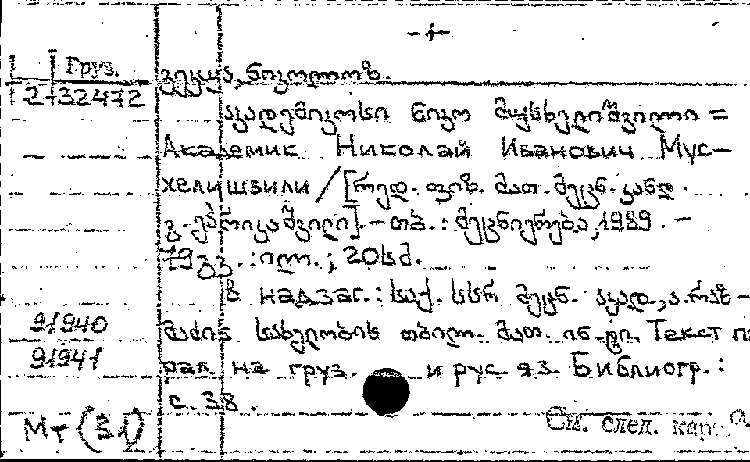 -1-
Груз.
2-32472
ვეკუა, ნიკოლოზ.
აკადემიკოსი ნიკო მუსხელიშვილი =
Академик Николай Иванович Мус-
хелишвили / [რედ. ფიზ. მათ. მეცნ. კანდ.
გ. მანჯავიძე] . - თბ. : მეცნიერება, 1989 . -
79 გვ. : ილ. ; 20 სმ.
В надзаг. : საქ. სსრ მეცნ. აკად., ა. რაზ-
მაძის სახელობის თბილ. მათ. ინ-ტი. Текст па-
рал на груз. и рус яз. Библиогр. :
с. 38 .
91940
91941
Мт (31)
См. след. кар.